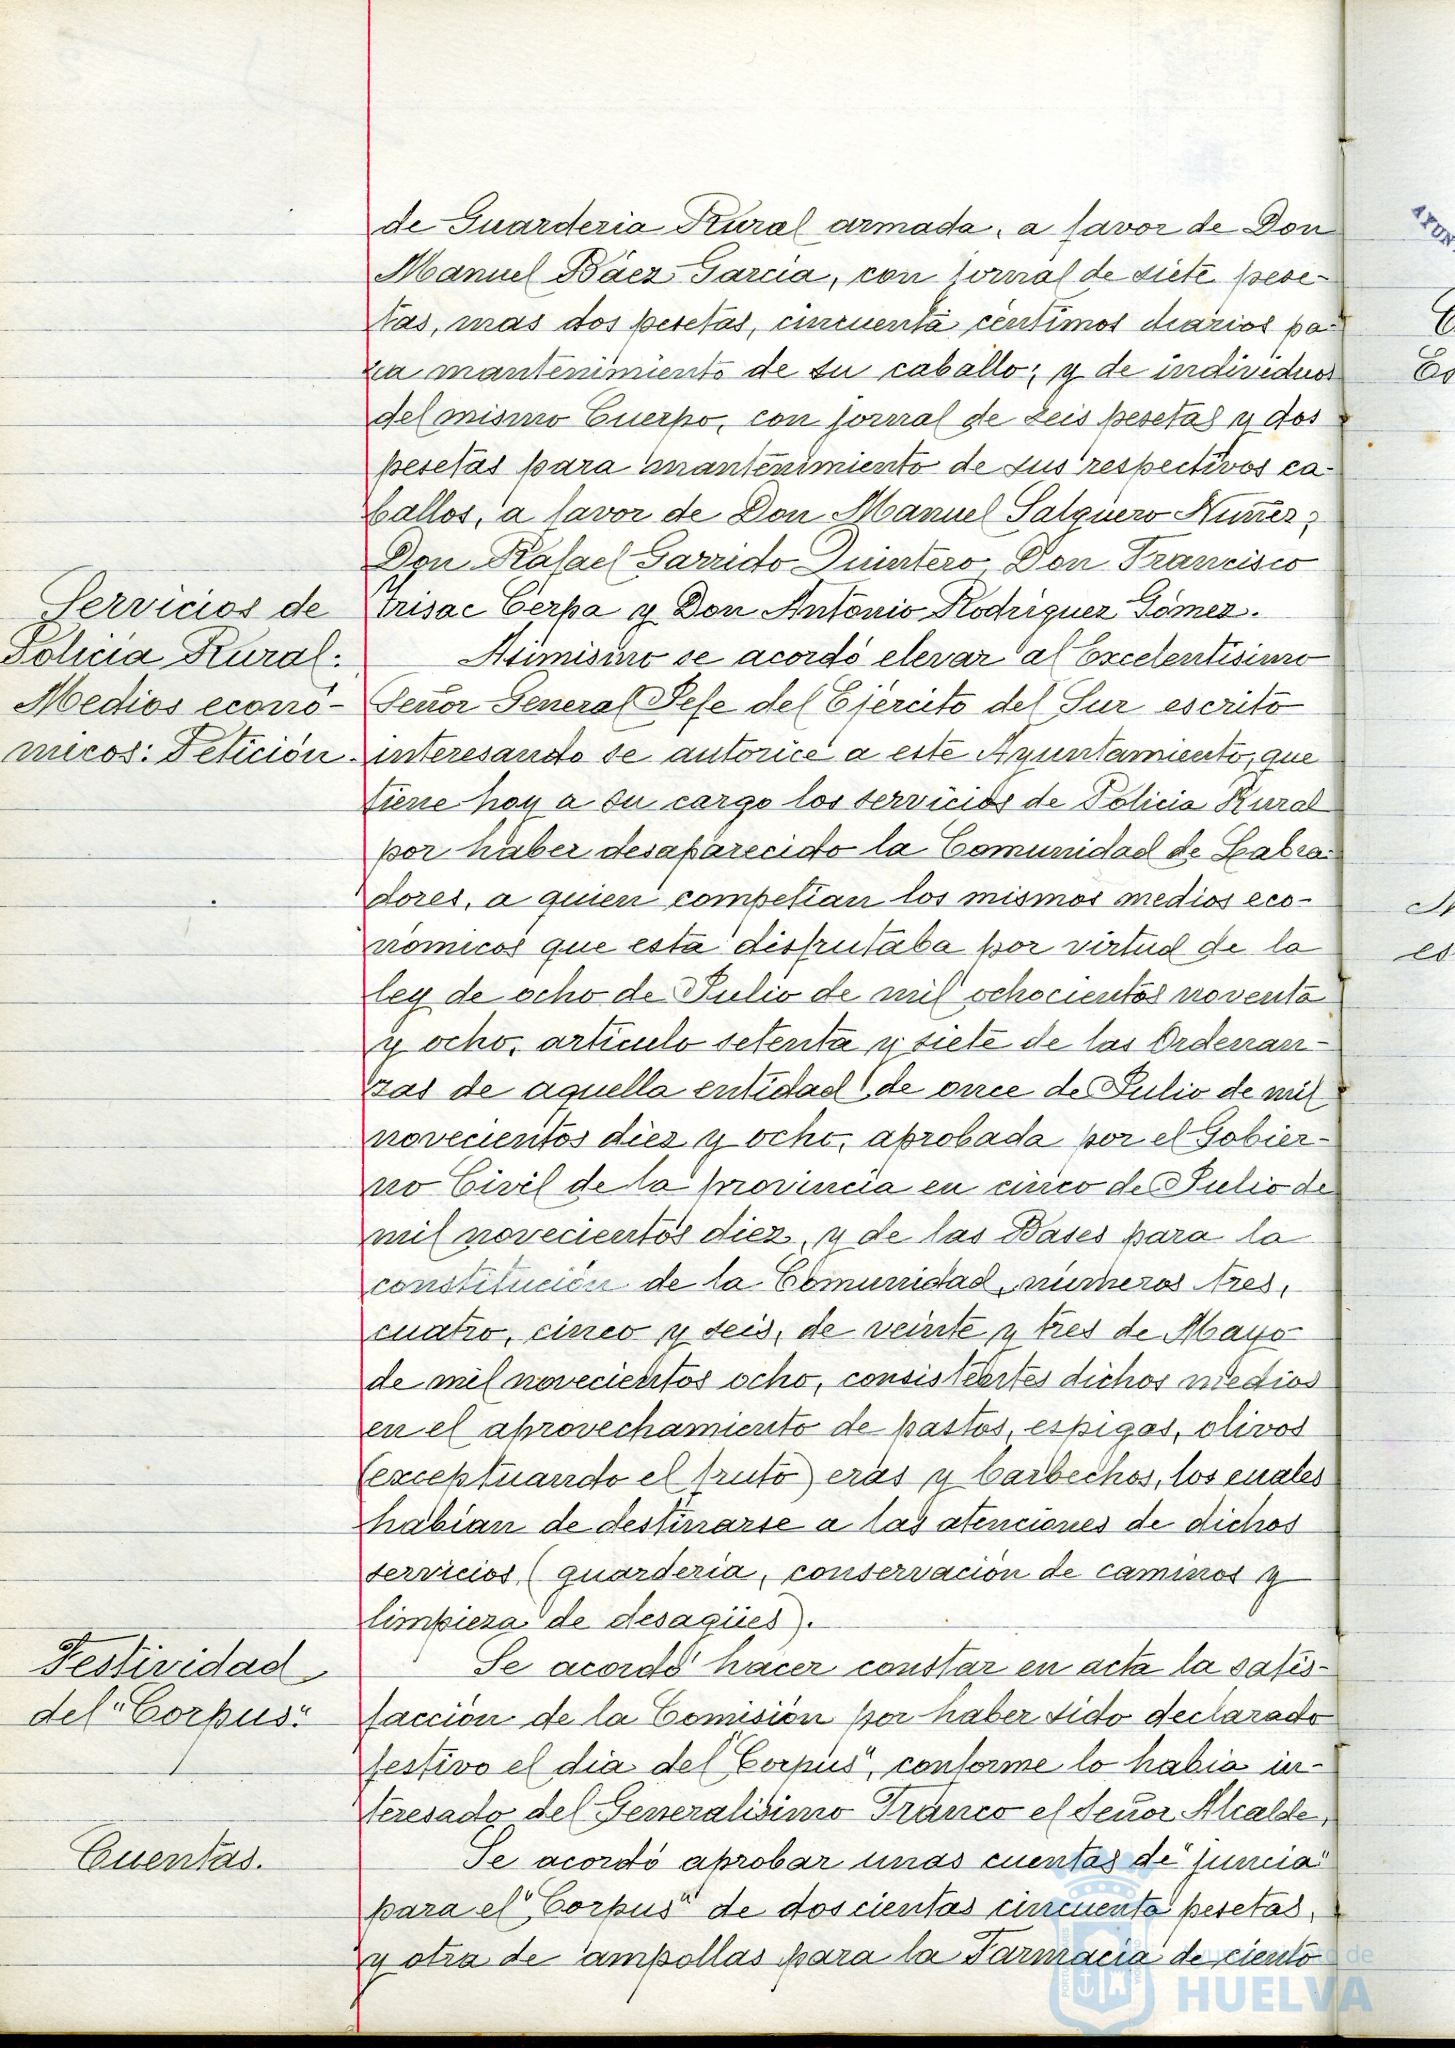 de Guarderia Rural armada, a favor de Don
Manuel Báez Garcia, con jornal de siete pese-
tas, mas dos pesetas, cincuenta céntimos diarios pa-
ra mantenimiento de su caballo; y de individuos
del mismo Cuerpo, con jornal de seis pesetas y dos
pesetas para mantenimiento de sus respectivos ca-
ballos, a favor de Don Manuel Salguero Nuñez,
Don Rafael Garrido Quintero, Don Francisco
Trisac Cerpa y Don Antonio Rodriguez Gómez.
Servicios de
Policia Rural:
Medios econó-
micos: Petición.
Asimismo se acordó elevar al Excelentisimo
Señor General Jefe del Ejército del Sur escrito
interesando se autorice a este Ayuntamiento, que
tiene hoy a su cargo los servicios de Policia Rural
por haber desaparecido la Comunidad de Labra-
dores, a quien competian los mismos medios eco-
nómicos que esta disfrutaba por virtud de la
ley de ocho de Julio de mil ochocientos noventa
y ocho, articulo setenta y siete de las Ordenan-
zas de aquella entidad de once de Julio de mil
novecientos diez y ocho, aprobada por el Gobier-
no Civil de la provincia en cinco de Julio de
mil novecientos diez, y de las Bases para la
constitución de la Comunidad, números tres,
cuatro, cinco y seis, de veinte y tres de Mayo
de mil novecientos ocho, consistentes dichos medios
en el aprovechamiento de pastos, espigas, olivos
(exceptuando el fruto) eras y barbechos, los cuales
habian de destinarse a las atenciones de dichos
servicios (guarderia, conservación de caminos y
limpieza de desagües).
Festividad
del "Corpus".
Se acordó hacer constar en acta la satis-
facción de la Comisión por haber sido declarado
festivo el dia del "Corpus", conforme lo habia in-
teresado del Generalisimo Franco el Señor Alcalde.
Cuentas.
Se acordó aprobar unas cuentas de "juncia"
para el "Corpus" de doscientas cincuenta pesetas,
y otra de ampollas para la Farmacia de ciento
Ayuntamiento de
HUELVA